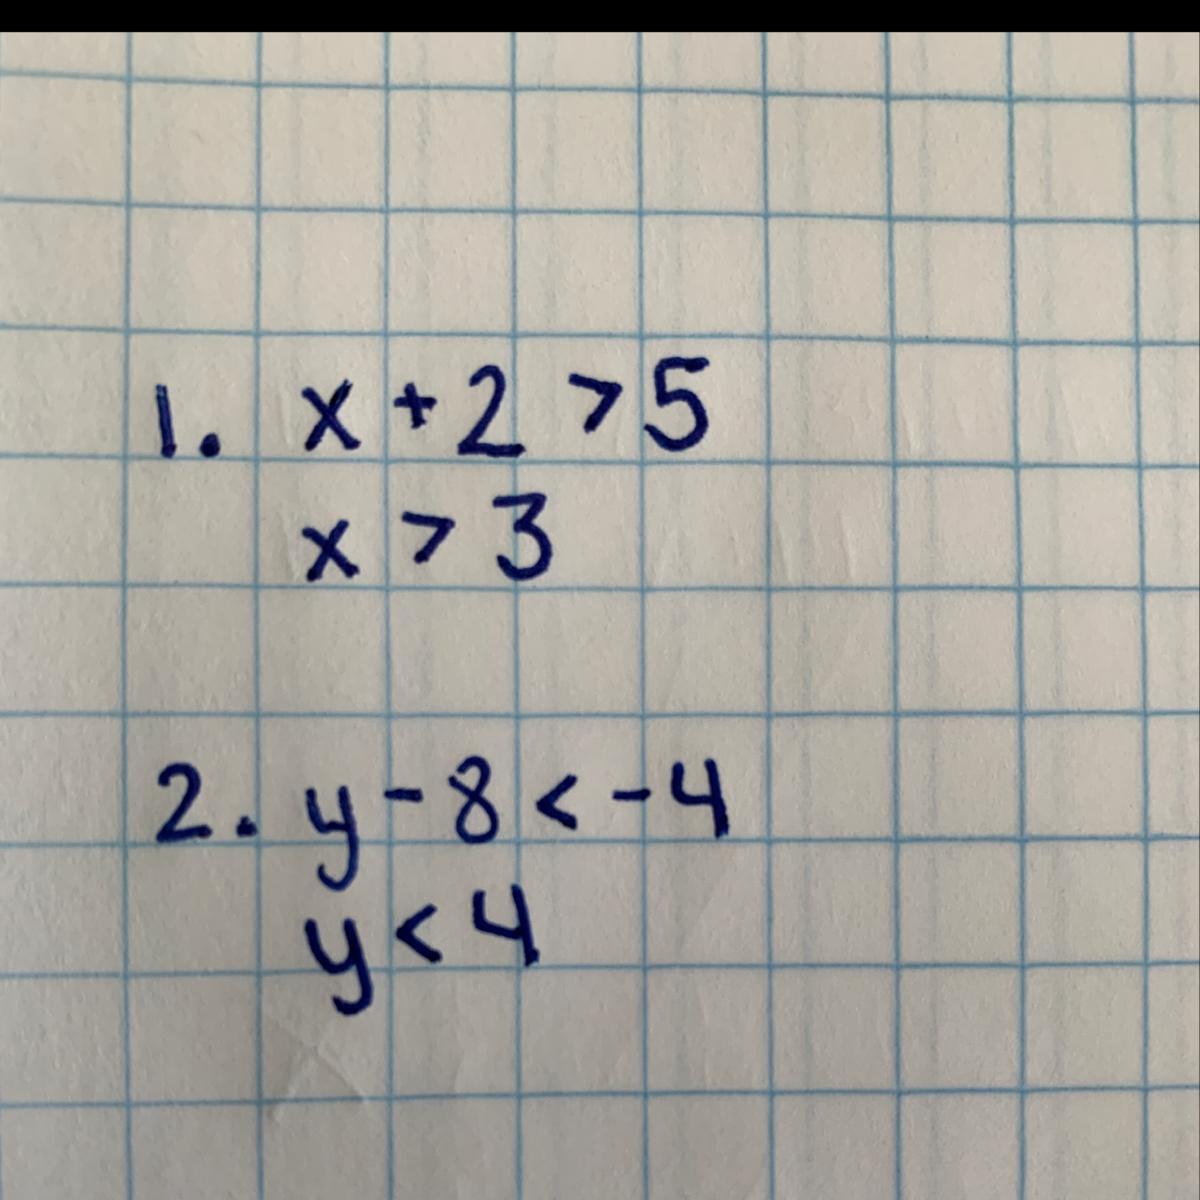 1. x + 2 > 5
x > 3
2. y - 8 < -4
y < 4